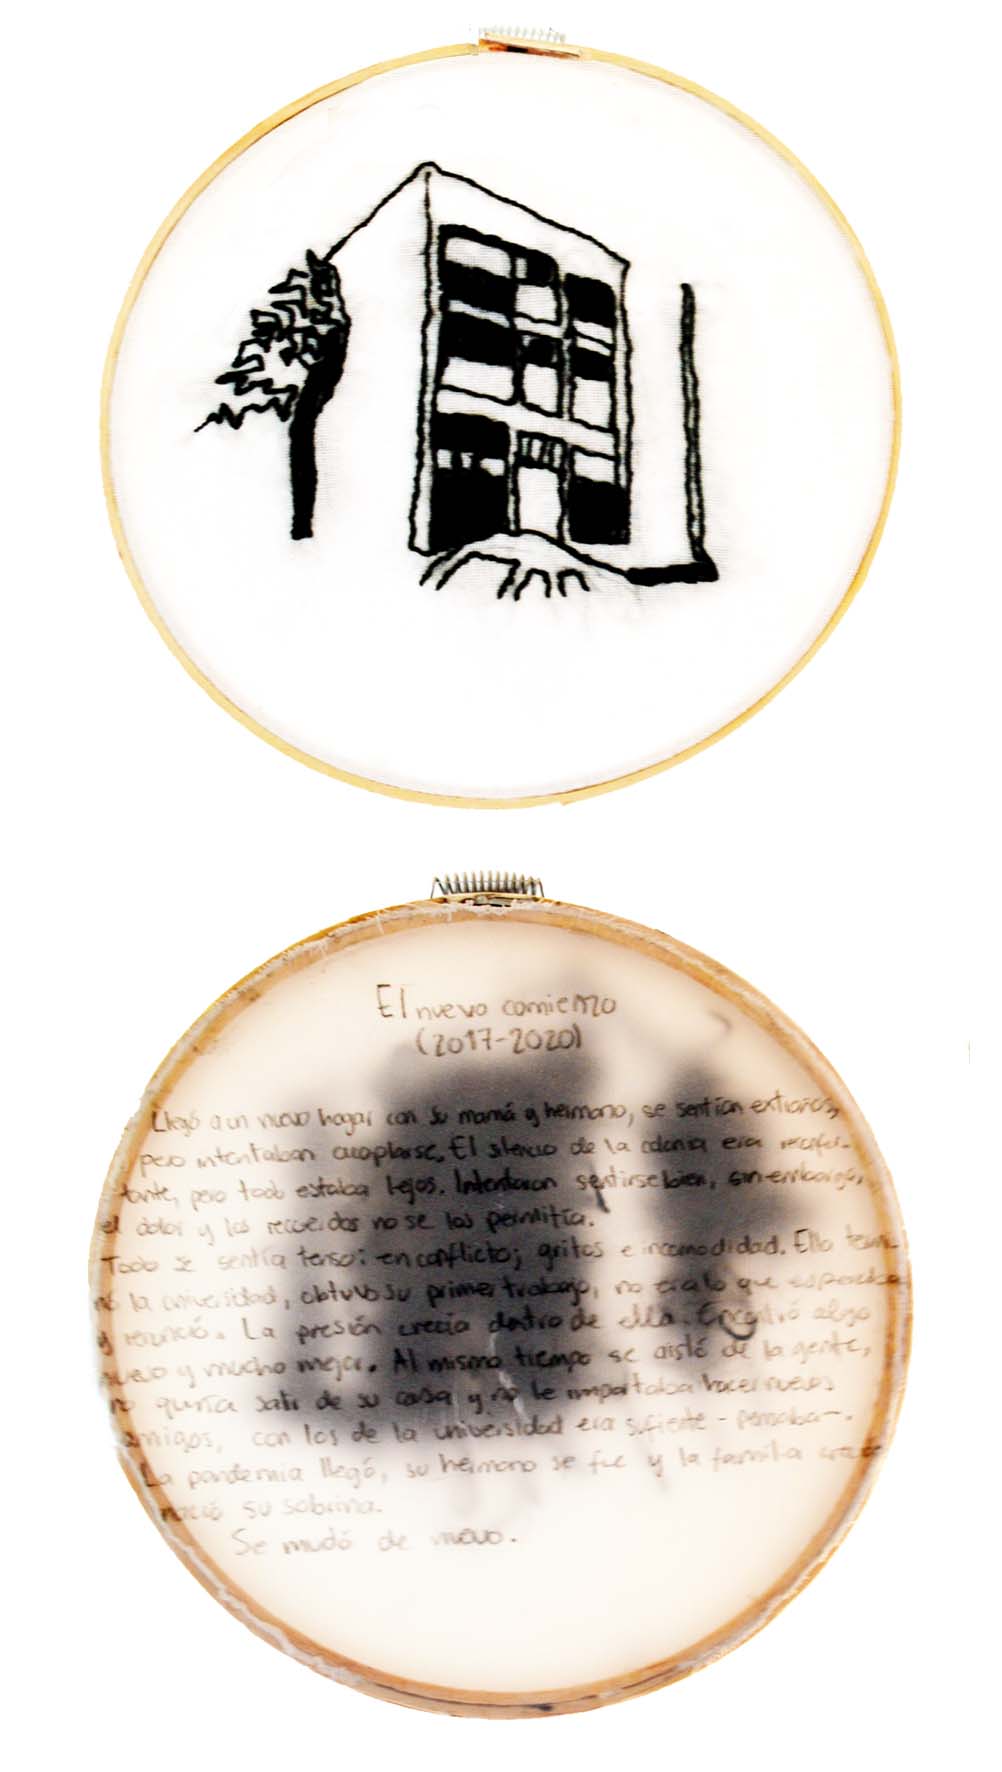 El nuevo comienzo
(2017-2020)
Llegó a un nuevo hogar con su mamá y hermano, se sentían extraños,
pero intentaban acoplarse. El silencio de la colonia era reconfor-
tante, pero todo estaba lejos. Intentaron sentirse bien, sin embargo,
el dolor y los recuerdos no se los permitía.
Todo se sentía tenso: en conflicto; gritos e incomodidad. Ella termi-
nó la universidad, obtuvo su primer trabajo, no era lo que esperaba
y renunció. La presión crecía dentro de ella. Encontró algo
nuevo y mucho mejor. Al mismo tiempo se aisló de la gente,
no quería salir de su casa y no le importaba hacer nuevos
amigos, con los de la universidad era suficiente - pensaba-.
La pandemia llegó, su hermano se fue y la familia creció
nació su sobrina.
Se mudó de nuevo.